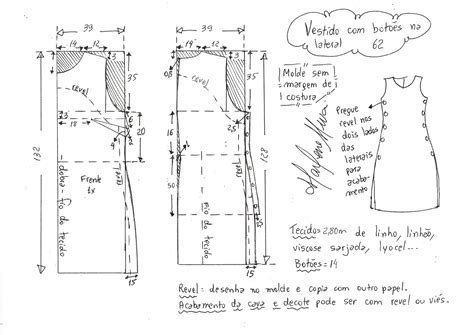 Vestido com botões na
lateral 62
39
14 12
3
35
revel
23
18
20
4
132
Frente
1x
dobra-fio do tecido
revel
15
39
14 12
3
35
0,8
revel
2,5
16
50
128
fio do tecido
revel
15
Molde sem
margem de
costura
Marlene Mukai
Pregue
revel nos
dois lados
das
laterais
para
acabamento
Tecido= 2,80m de linho, linhão,
viscose sarjada, lyocel...
Botões= 14
Revel= desenha no molde e copia com outro papel.
Acabamento da cava e decote pode ser com revel ou viés.